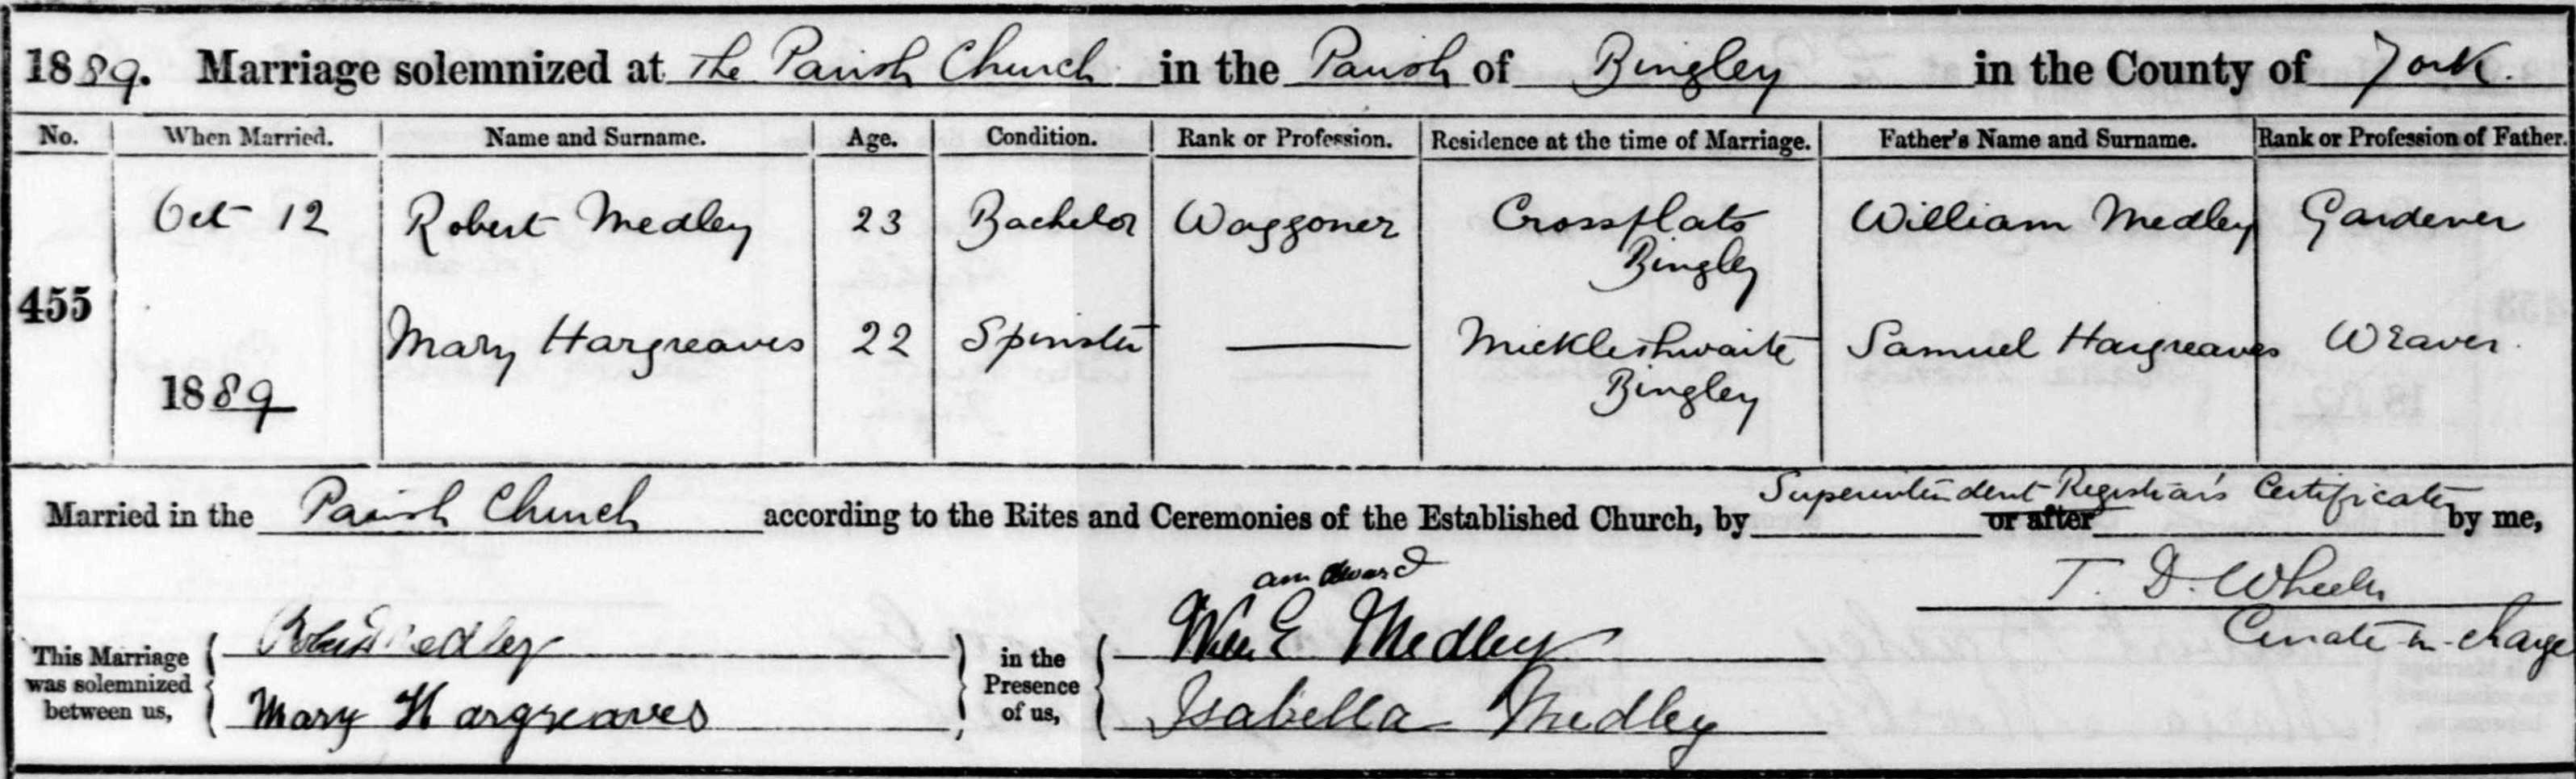 1889. Marriage solemnized at The Parish Church in the Parish of Bingley in the County of York.
No. When Married. Name and Surname. Age. Condition. Rank or Profession. Residence at the time of Marriage. Father's Name and Surname. Rank or Profession of Father.
Oct 12 Robert Medley 23 Bachelor Waggoner Crossflats William Medley Gardener
Bingley
455
Mary Hargreaves 22 Spinster Micklethwaite Samuel Hargreaves Weaver.
1889 Bingley
Superintendent Registrar's Certificate
Married in the Parish Church according to the Rites and Ceremonies of the Established Church, by or after by me,
T. D. Wheeler
Curate-in-charge
This Marriage was solemnized between us,
Robert Medley
Mary Hargreaves
in the Presence of us,
am dward
Wm E Medley
Isabella Medley